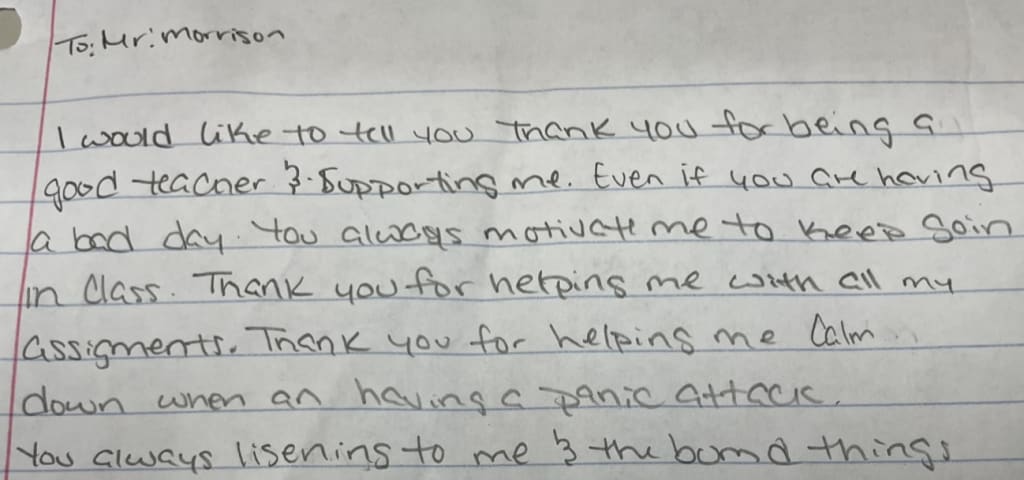 To: Mr: morrison
I would like to tell you thank you for being a
good teacher & Supporting me. Even if you are having
a bad day. You always motivate me to keep goin
in Class. Thank you for helping me with all my
assigments. Thank you for helping me Calm
down when an having a panic attack.
You always lisening to me & the bomd things